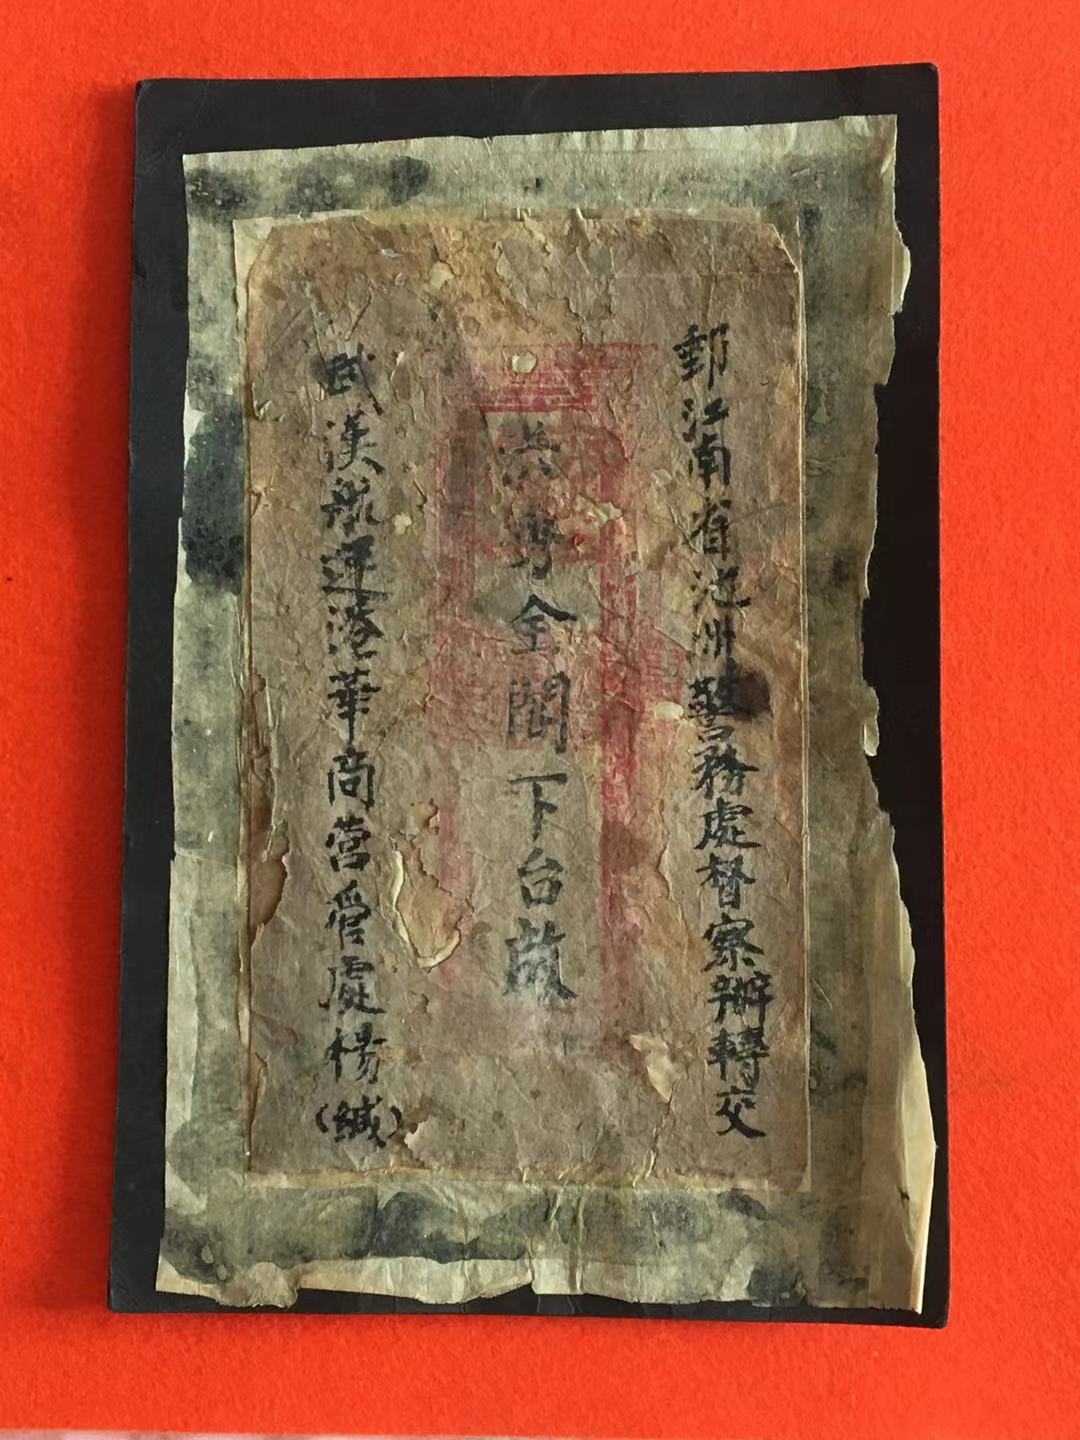 郵江南省池州警務處督察辦轉交
洪秀全閣下台啟
武漢航運港華商營管處楊(緘)